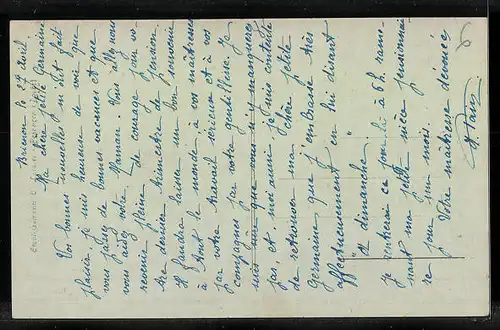 Brienon le 27 Avril
Ma chère petite Germaine
Vos bonnes nouvelles m'ont fait
plaisir, je suis heureuse de voir que
vous passez de bonnes vacances et que
vous aidez votre Maman. Vous allez nous
revenir pleine de courage pour vo-
tre dernier trimestre de pension.
Il faudra laisser un bon souvenir
à tout le monde à vos maîtresses
par votre travail sérieux et à vos
compagnes par votre gentillesse. Je
suis sûre que vous n'y manquerez
pas et moi aussi je suis contente
de retrouver ma chère petite
Germaine que j'embrasse très
affectueusement en lui disant
"A dimanche"
Je rentrerai ce jour-là à 6h. rame-
nant ma petite nièce pensionnai-
re pour un mois.
Votre maîtresse dévouée